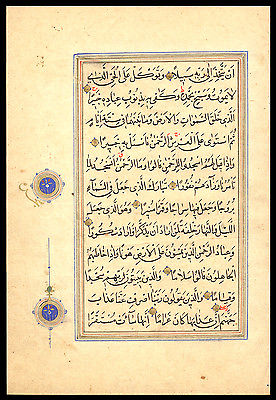 أَنْ يَتَّخِذَ إِلَى رَبِّهِ سَبِيلًا وَتَوَكَّلْ عَلَى الْحَيِّ الَّذِي
لَا يَمُوتُ وَسَبِّحْ بِحَمْدِهِ وَكَفَى بِهِ بِذُنُوبِ عِبَادِهِ خَبِيرًا
الَّذِي خَلَقَ السَّمَوَاتِ وَالْأَرْضَ وَمَا بَيْنَهُمَا فِي سِتَّةِ أَيَّامٍ
ثُمَّ اسْتَوَى عَلَى الْعَرْشِ الرَّحْمَنُ فَاسْئَلْ بِهِ خَبِيرًا
وَإِذَا قِيلَ لَهُمُ اسْجُدُوا لِلرَّحْمَنِ قَالُوا وَمَا الرَّحْمَنُ أَنَسْجُدُ لِمَا
تَأْمُرُنَا وَزَادَهُمْ نُفُورًا تَبَارَكَ الَّذِي جَعَلَ فِي السَّمَاءِ
بُرُوجًا وَجَعَلَ فِيهَا سِرَاجًا وَقَمَرًا مُنِيرًا وَهُوَ الَّذِي جَعَلَ
اللَّيْلَ وَالنَّهَارَ خِلْفَةً لِمَنْ أَرَادَ أَنْ يَذَّكَّرَ أَوْ أَرَادَ شُكُورًا
وَعِبَادُ الرَّحْمَنِ الَّذِينَ يَمْشُونَ عَلَى الْأَرْضِ هَوْنًا وَإِذَا خَاطَبَهُمُ
الْجَاهِلُونَ قَالُوا سَلَامًا وَالَّذِينَ يَبِيتُونَ لِرَبِّهِمْ سُجَّدًا
وَقِيَامًا وَالَّذِينَ يَقُولُونَ رَبَّنَا اصْرِفْ عَنَّا عَذَابَ
جَهَنَّمَ إِنَّ عَذَابَهَا كَانَ غَرَامًا إِنَّهَا سَاءَتْ مُسْتَقَرًّا